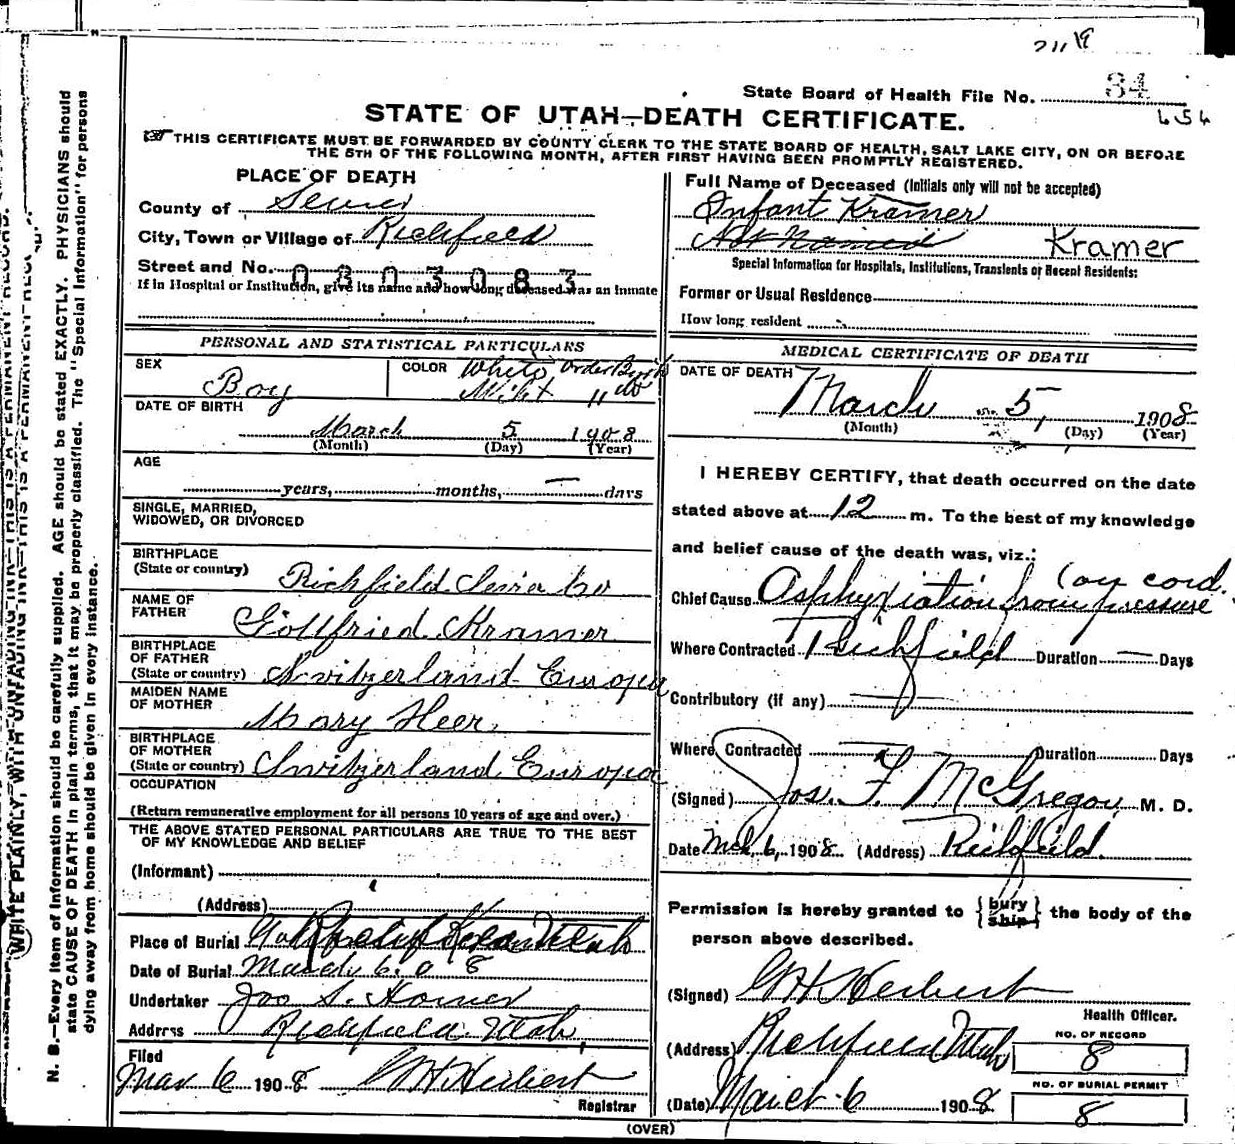 State Board of Health File No. 34
STATE OF UTAH—DEATH CERTIFICATE.
THIS CERTIFICATE MUST BE FORWARDED BY COUNTY CLERK TO THE STATE BOARD OF HEALTH, SALT LAKE CITY, ON OR BEFORE
THE 5TH OF THE FOLLOWING MONTH, AFTER FIRST HAVING BEEN PROMPTLY REGISTERED.
PLACE OF DEATH
County of Sevier
City, Town or Village of Richfield
Street and No.
0803083
If in Hospital or Institution, give its name and how long deceased was an inmate
Full Name of Deceased (Initials only will not be accepted)
Infant Kramer
Not Named Kramer
Special Information for Hospitals, Institutions, Transients or Recent Residents:
Former or Usual Residence
How long resident
PERSONAL AND STATISTICAL PARTICULARS
SEX Boy
COLOR White Order Birth
DATE OF BIRTH
March 5 1908
(Month) (Day) (Year)
AGE
years, months, — days
SINGLE, MARRIED,
WIDOWED, OR DIVORCED
BIRTHPLACE
(State or country) Richfield Sevier Co
NAME OF
FATHER Gottfried Kramer
BIRTHPLACE
OF FATHER
(State or country) Switzerland Europa
MAIDEN NAME
OF MOTHER Mary Heer
BIRTHPLACE
OF MOTHER
(State or country) Switzerland Europa
OCCUPATION
(Return remunerative employment for all persons 10 years of age and over.)
THE ABOVE STATED PERSONAL PARTICULARS ARE TRUE TO THE BEST
OF MY KNOWLEDGE AND BELIEF
(Informant)
(Address)
Place of Burial Richfield Utah
Date of Burial March 6. 08
Undertaker Joo S. Horne
Address Richfield Utah,
Filed
Mar 6 1908 G H Herbert
Registrar
MEDICAL CERTIFICATE OF DEATH
DATE OF DEATH
March 5, 1908
(Month) (Day) (Year)
I HEREBY CERTIFY, that death occurred on the date
stated above at 12 m. To the best of my knowledge
and belief cause of the death was, viz.:
(on cord.
Chief Cause Asphyxiation from pressure
Where Contracted Richfield Duration — Days
Contributory (if any)
Where Contracted Duration — Days
(Signed) Jos. F. McGregor, M. D.
Date Mch 6, 1908 (Address) Richfield.
Permission is hereby granted to {bury ship} the body of the
person above described.
(Signed) G H Herbert
Health Officer.
(Address) Richfield Utah
NO. OF RECORD
8
(Date) March 6 1908
NO. OF BURIAL PERMIT
8
(OVER)
WRITE PLAINLY, WITH UNFADING INK—THIS IS A PERMANENT RECORD.
N. B.—Every item of information should be carefully supplied. AGE should be stated EXACTLY. PHYSICIANS should
state CAUSE OF DEATH in plain terms, that it may be properly classified. The "Special Information" for persons
dying away from home should be given in every instance.